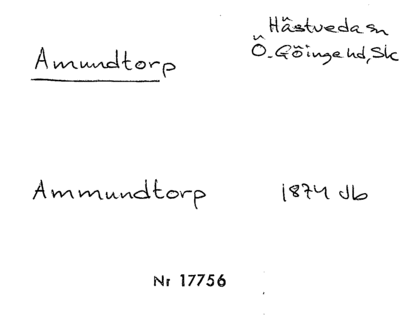 Hästveda sn
Amundtorp
Ö. Göinge hd, Sk
Ammundtorp 1874 Jb
Nr 17756